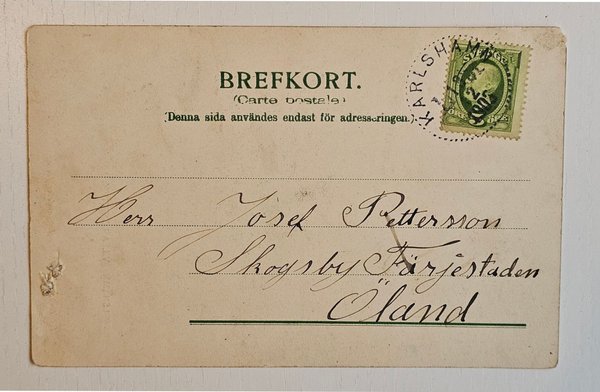 BREFKORT.
(Carte postale)
(Denna sida användes endast för adresseringen.)
KARLSHAMN
Herr Josef Pettersson
Skogsby Färjestaden
Öland